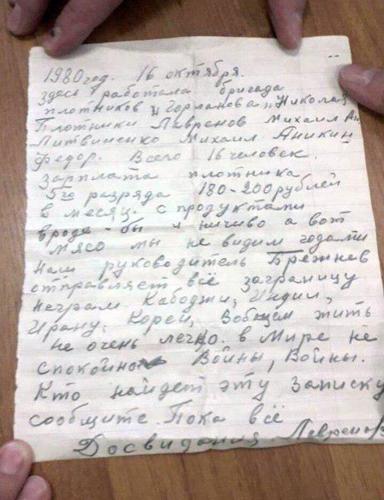 1980 год. 16 октября.
здесь работала бригада
плотников Горланова Николая
Плотники Лавренов Михаил
Литвиненко Михаил Аникин
Федор. Всего 16 человек.
Зарплата плотника
5го разряда 180-200 рублей
в месяц. с продуктами
вроде-бы и ничиво а вот
мясо мы не видим годами
наш руководитель Брежнев
отправляет всё заграницу
неграм. Кабоджи, Индии,
Ирану, Корей, Вобщем жить
не очень легко. в Мире не
спокойно Войны, Войны.
Кто найдет эту Записку
сообщите. Пока всё
Досвидания. Лавренов